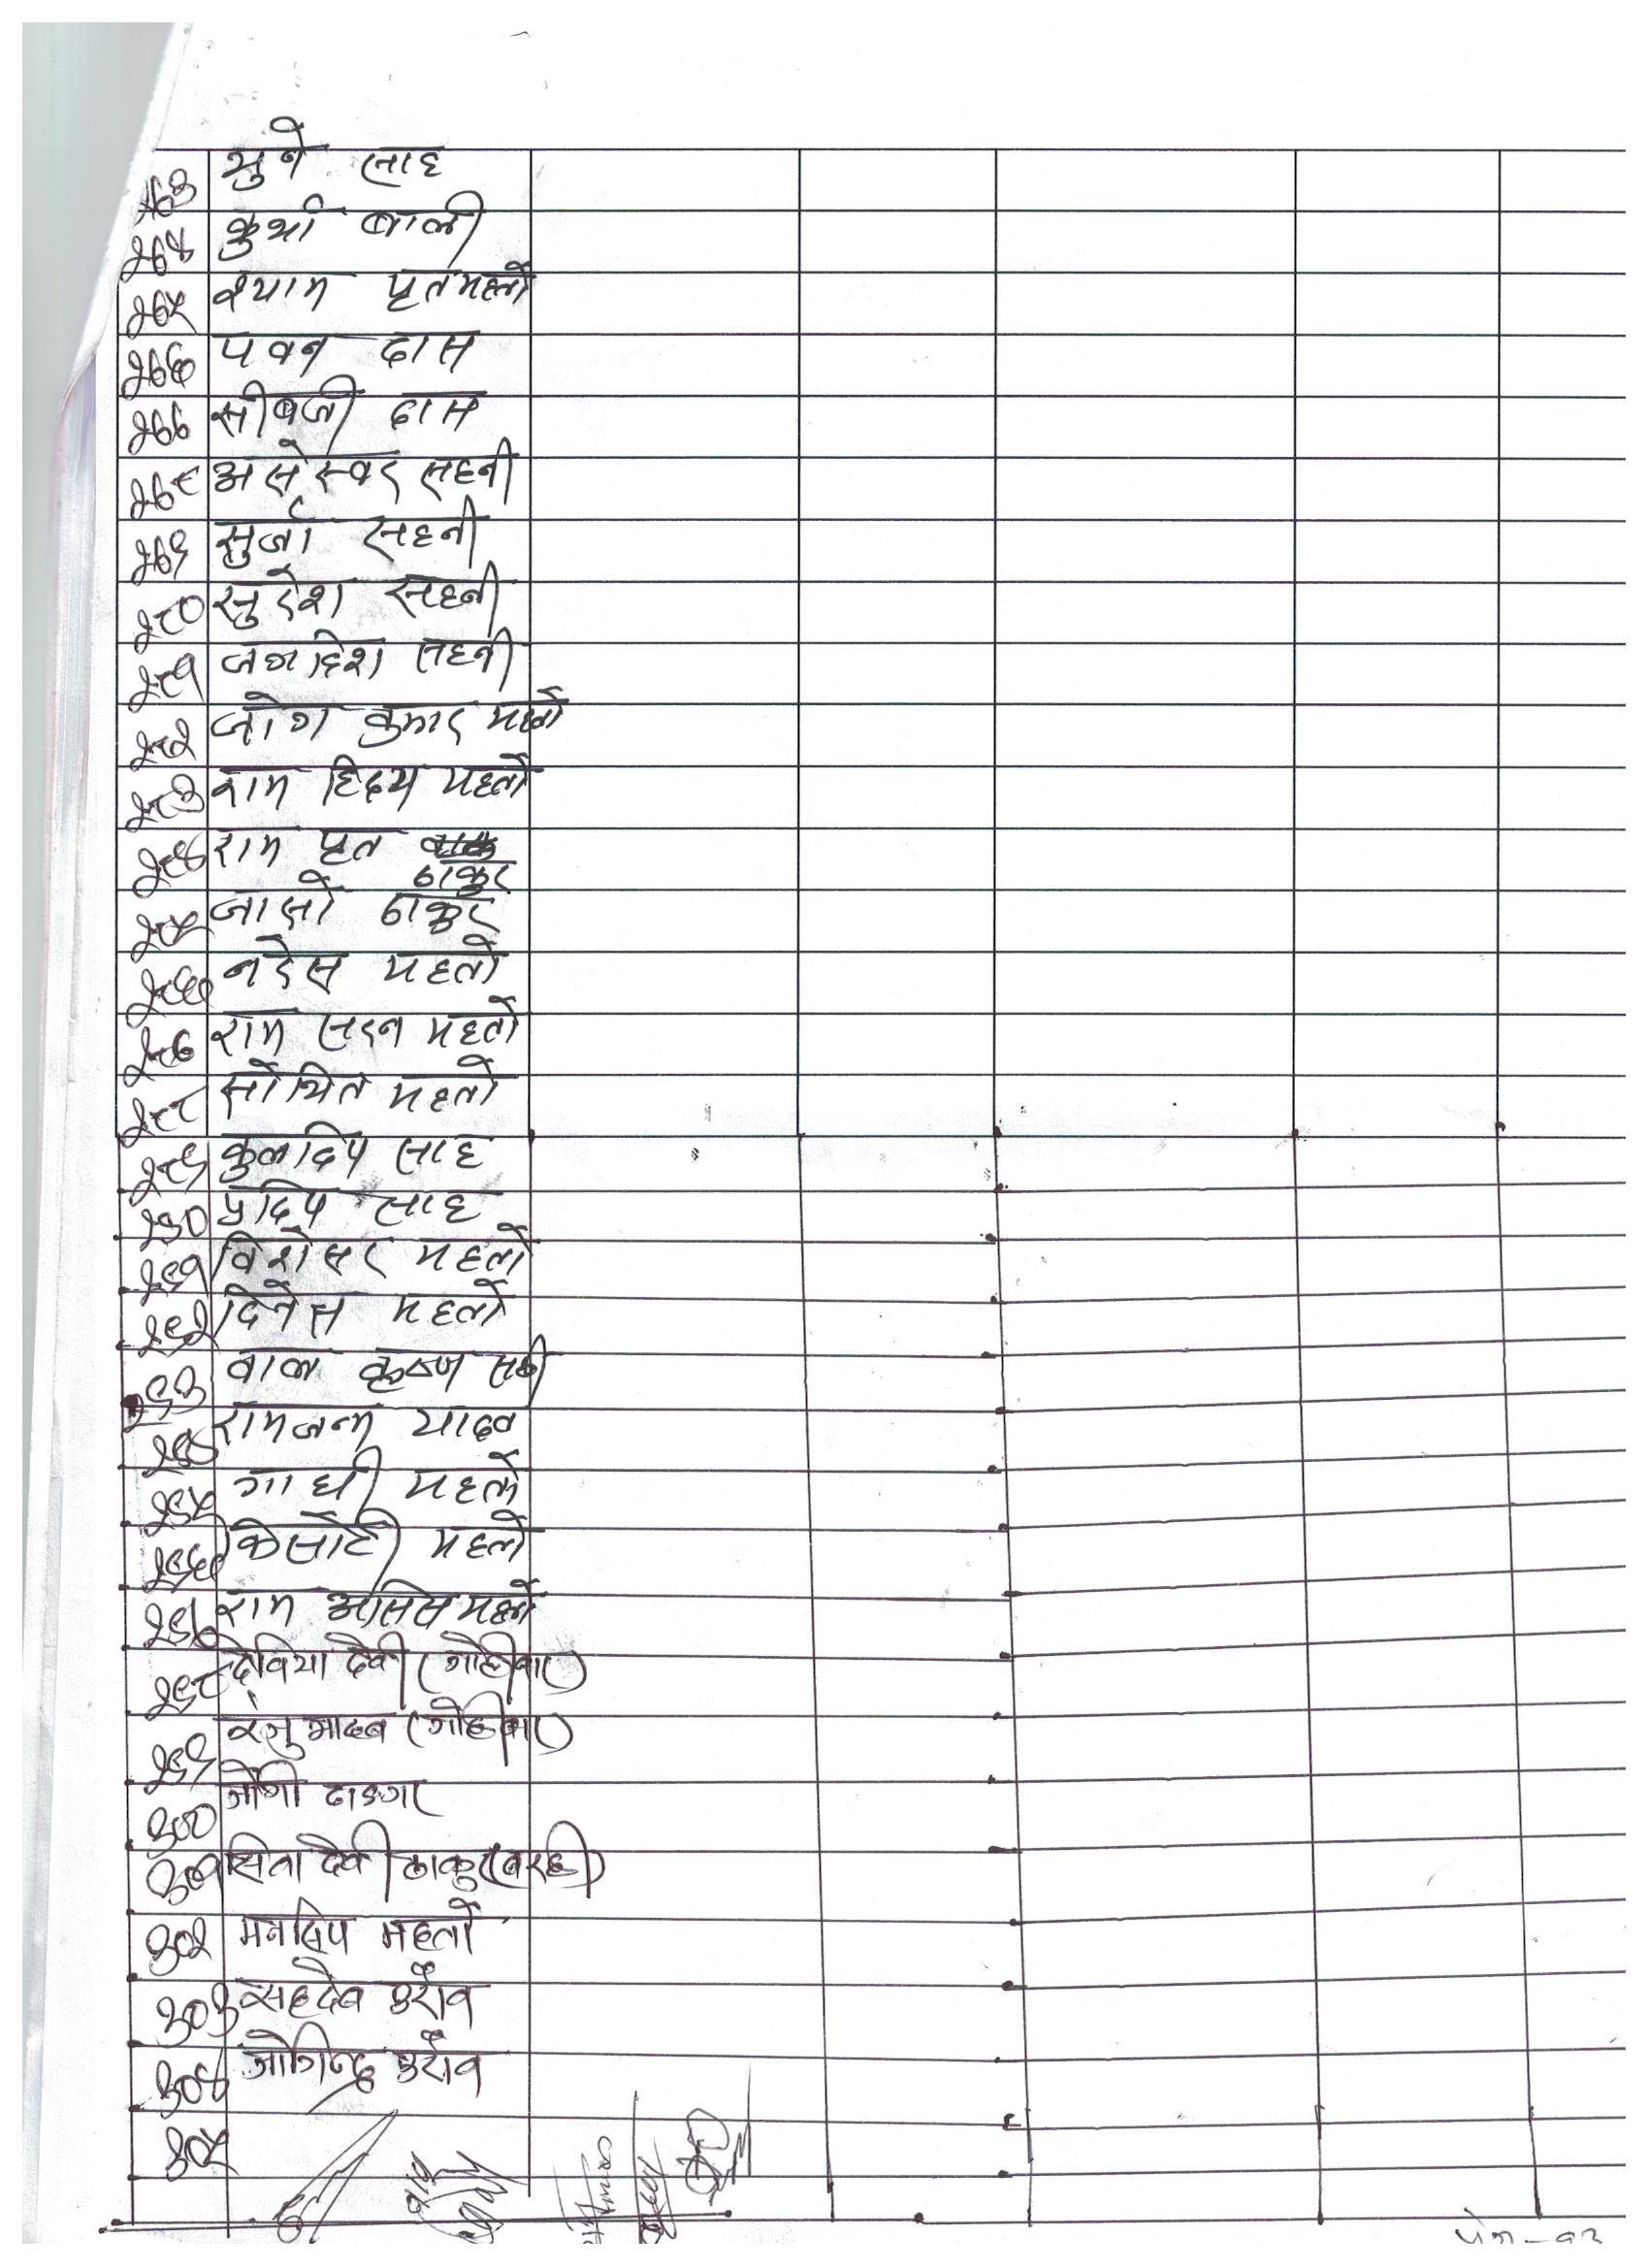 २७३ भुने साह
२७४ कुर्था बाली
२७५ श्याम पृत महतो
२७६ पवन दास
२७७ सीबजी दास
२७८ असेस्वर सहनी
२७९ सुर्जा सहनी
२८० सुरेश सहनी
२८१ जगदिश सहनी
२८२ जोग कुमार महतो
२८३ राम हिदय महतो
२८४ राम पृत
ठाकुर
२८५ जासो ठाकुर
२८६ नरेस महतो
२८७ राम सरन महतो
२८८ सोभित महतो
२८९ कुलदिप साह
२९० प्रदिप साह
२९१ विशेसर महतो
२९२ दिनेस महतो
२९३ बाल कृष्ण
२९४ रामजन्म यादव
२९५ गाधी महतो
२९६ किसोरी महतो
२९७ राम असिस महतो
२९८ देविया देवी (गोहीबार)
२९९ रंजु यादब (गोहीबार)
३०० जोगी दाङगर
३०१ सिता देवी ठाकुर (बरही)
३०२ मनदिप महतो
३०३ सहदेब उराँव
३०४ जोगिन्द्र उराँव
३०५
पेज - १३